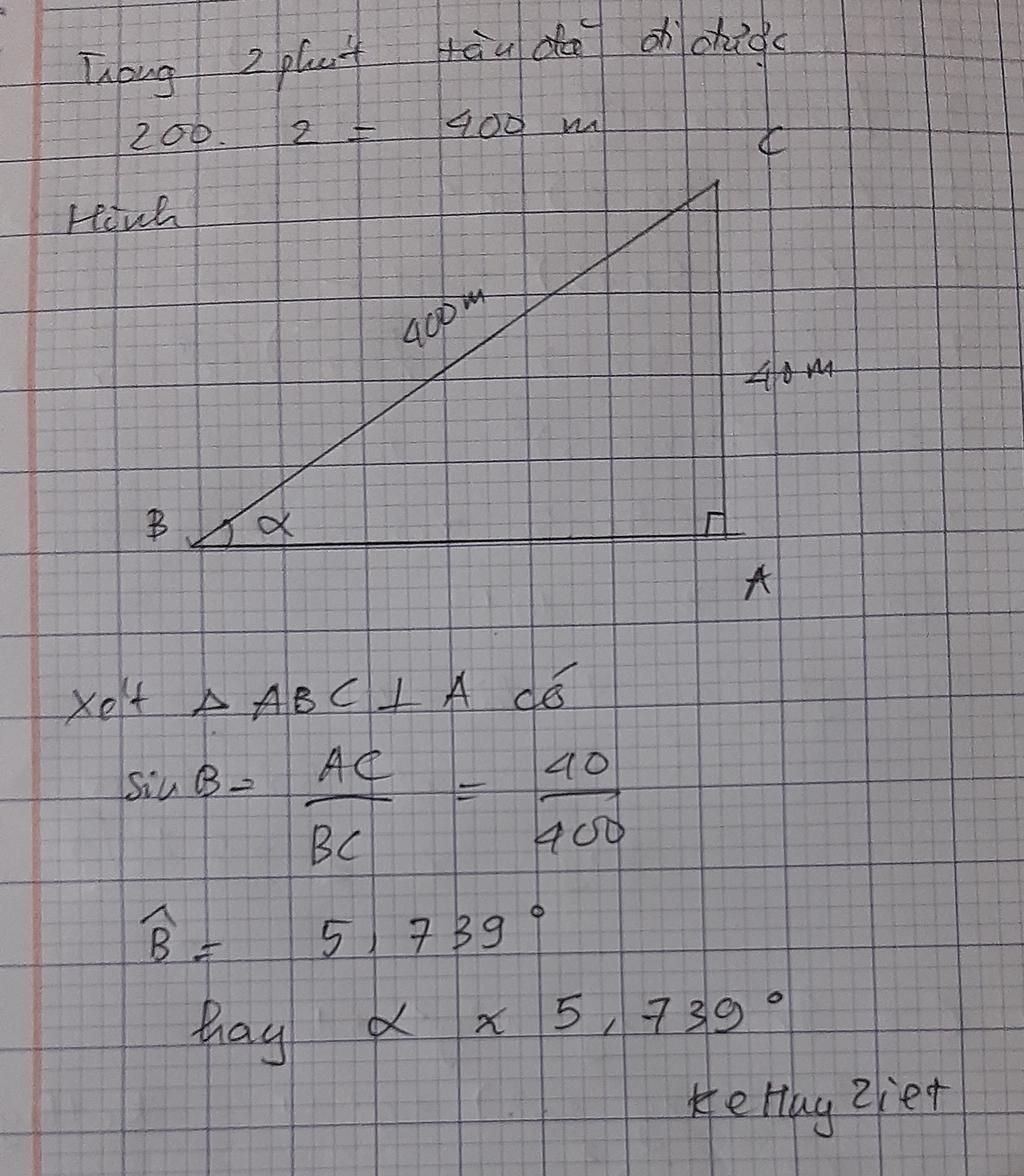 Trong 2 phút tàu đã đi được
200. 2 = 400 m
C
Hình
400 m
40 m
B α
A
Xét Δ ABC ⊥ A có
Sin B = AC/BC = 40/400
B̂ = 5,739°
hay α ≈ 5,739°